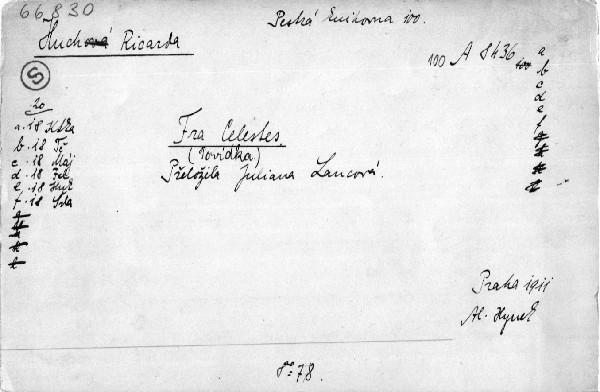 66.830
Pestrá knihovna 100.
Huchová Ricarda
100 A 8436
a
b
c
d
e
f
S
20
a. 18
b. 18 Tč
c. 18 Máj
d. 18
e. 18
f. 18
Fra Celestes.
(Povídka)
Přeložila Juliana Lancová.
Praha 1911
Al. Hynek
S: 78.